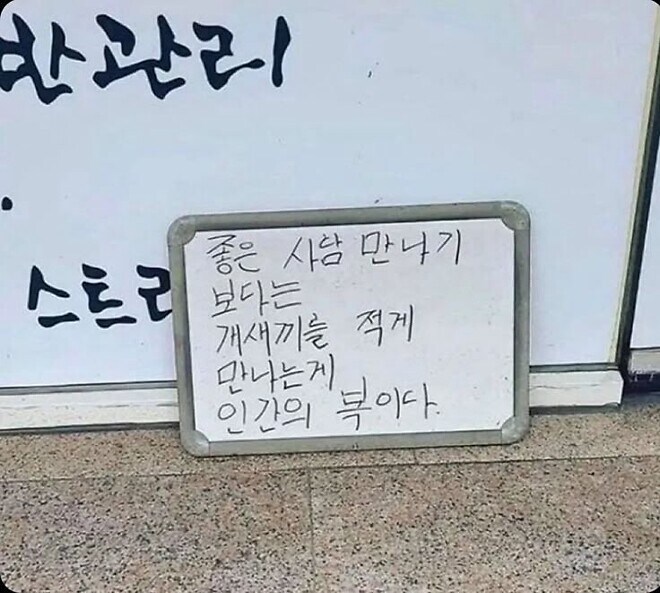 반관리
스트리
좋은 사람 만나기
보다는
개새끼를 적게
만나는게
인간의 복이다.